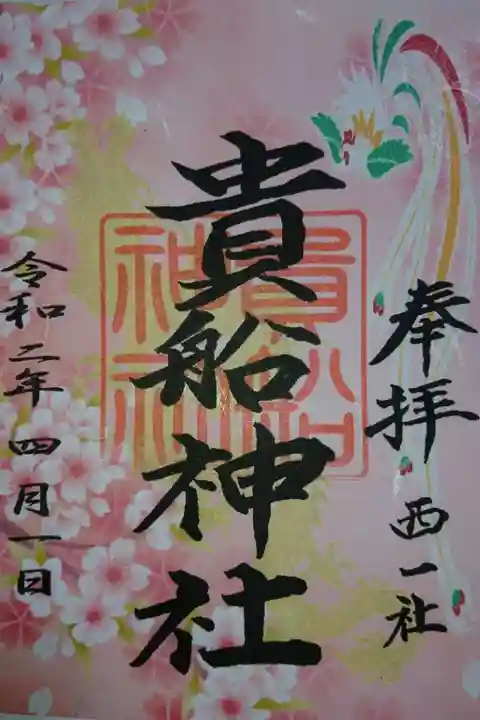 奉拝 西一社
貴船神社
貴船神社
令和二年四月一日